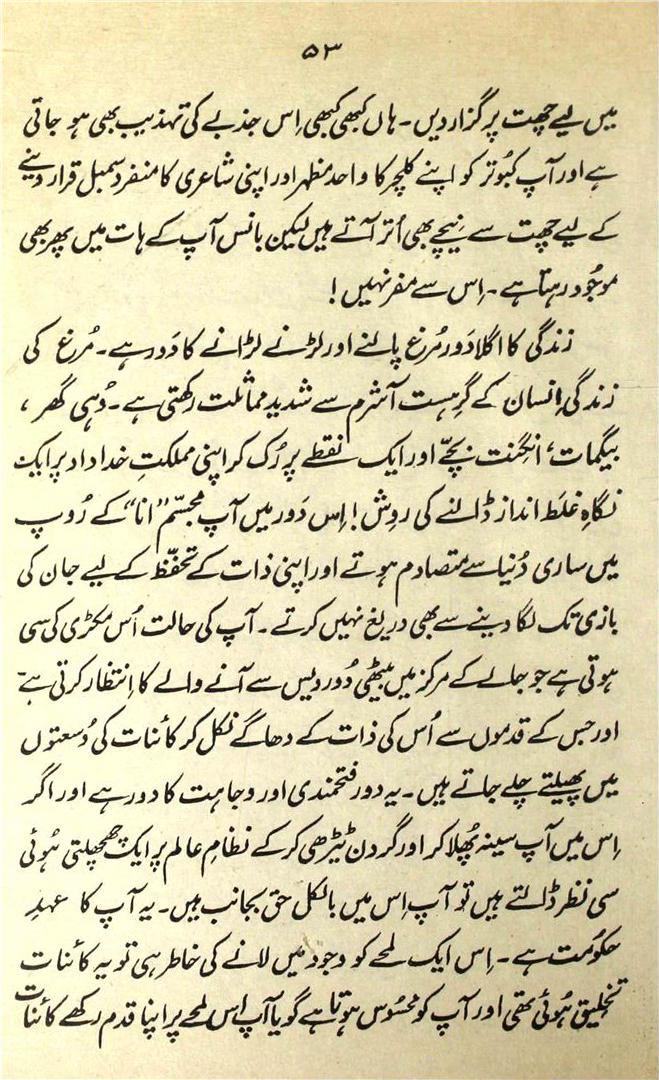 ۵۳
میں لیے چھت پر گزار دیں۔ ہاں کبھی کبھی اِس جذبے کی تہذیب بھی ہو جاتی
ہے اور آپ کبُوتر کو اپنے کلچر کا واحد مظہر اور اپنی شاعری کا منفرد سمبل قرار دینے
کے لیے چھت سے نیچے بھی اُتر آتے ہیں لیکن بانس آپ کے ہات میں پھر بھی
موجُود رہتا ہے۔ اِس سے مفر نہیں!
زندگی کا اگلا دَور مُرغ پالنے اور لڑنے لڑانے کا دَور ہے۔ مُرغ کی
زندگی اِنسان کے گرِہست آشرم سے شدید مماثلت رکھتی ہے۔ وُہی گھر،
بیگمات، انگنت بچّے اور ایک نقطے پر رُک کر اپنی مملکتِ خداداد پر ایک
نگاہِ غلَط انداز ڈالنے کی روِش! اِس دَور میں آپ مجسّم "انا" کے رُوپ
میں ساری دُنیا سے متصادم ہوتے اور اپنی ذات کے تحفّظ کے لیے جان کی
بازی تک لگا دینے سے بھی دریغ نہیں کرتے۔ آپ کی حالت اُس مکڑی کی سی
ہوتی ہے جو جالے کے مرکز میں بیٹھی دُور دیس سے آنے والے کا اِنتظار کرتی ہے
اور جس کے قدموں سے اُس کی ذات کے دھاگے نکل کر کائنات کی وُسعتوں
میں پھیلتے چلے جاتے ہیں۔ یہ دور فتحمندی اور وجاہت کا دور ہے اور اگر
اِس میں آپ سینہ پُھلا کر اور گردن ٹیڑھی کر کے نظامِ عالم پر ایک چھچھلتی ہُوئی
سی نظر ڈالتے ہیں تو آپ اِس میں بالکل حق بجانب ہیں۔ یہ آپ کا عہدِ
حکوُمت ہے۔ اِس ایک لمحے کو وجود میں لانے کی خاطر ہی تو یہ کائنات
تخلیق ہُوئی تھی اور آپ کو محسُوس ہوتا ہے گویا آپ اِس لمحے پر اپنا قدم رکھے کائنات